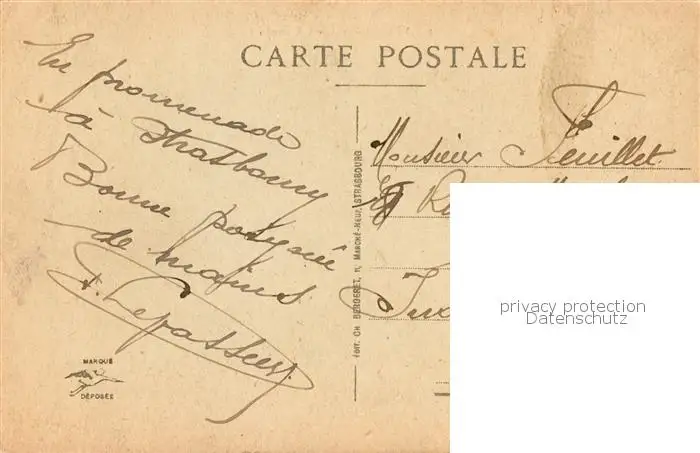 CARTE POSTALE
En promenade
à Strasbourg
Bonne poignée
de mains
A. Lepasteur
MARQUE
DÉPOSÉE
ÉDIT. CH. BERGERET, 11, MARCHÉ-NEUF, STRASBOURG
Monsieur Feuillet
privacy protection
Datenschutz